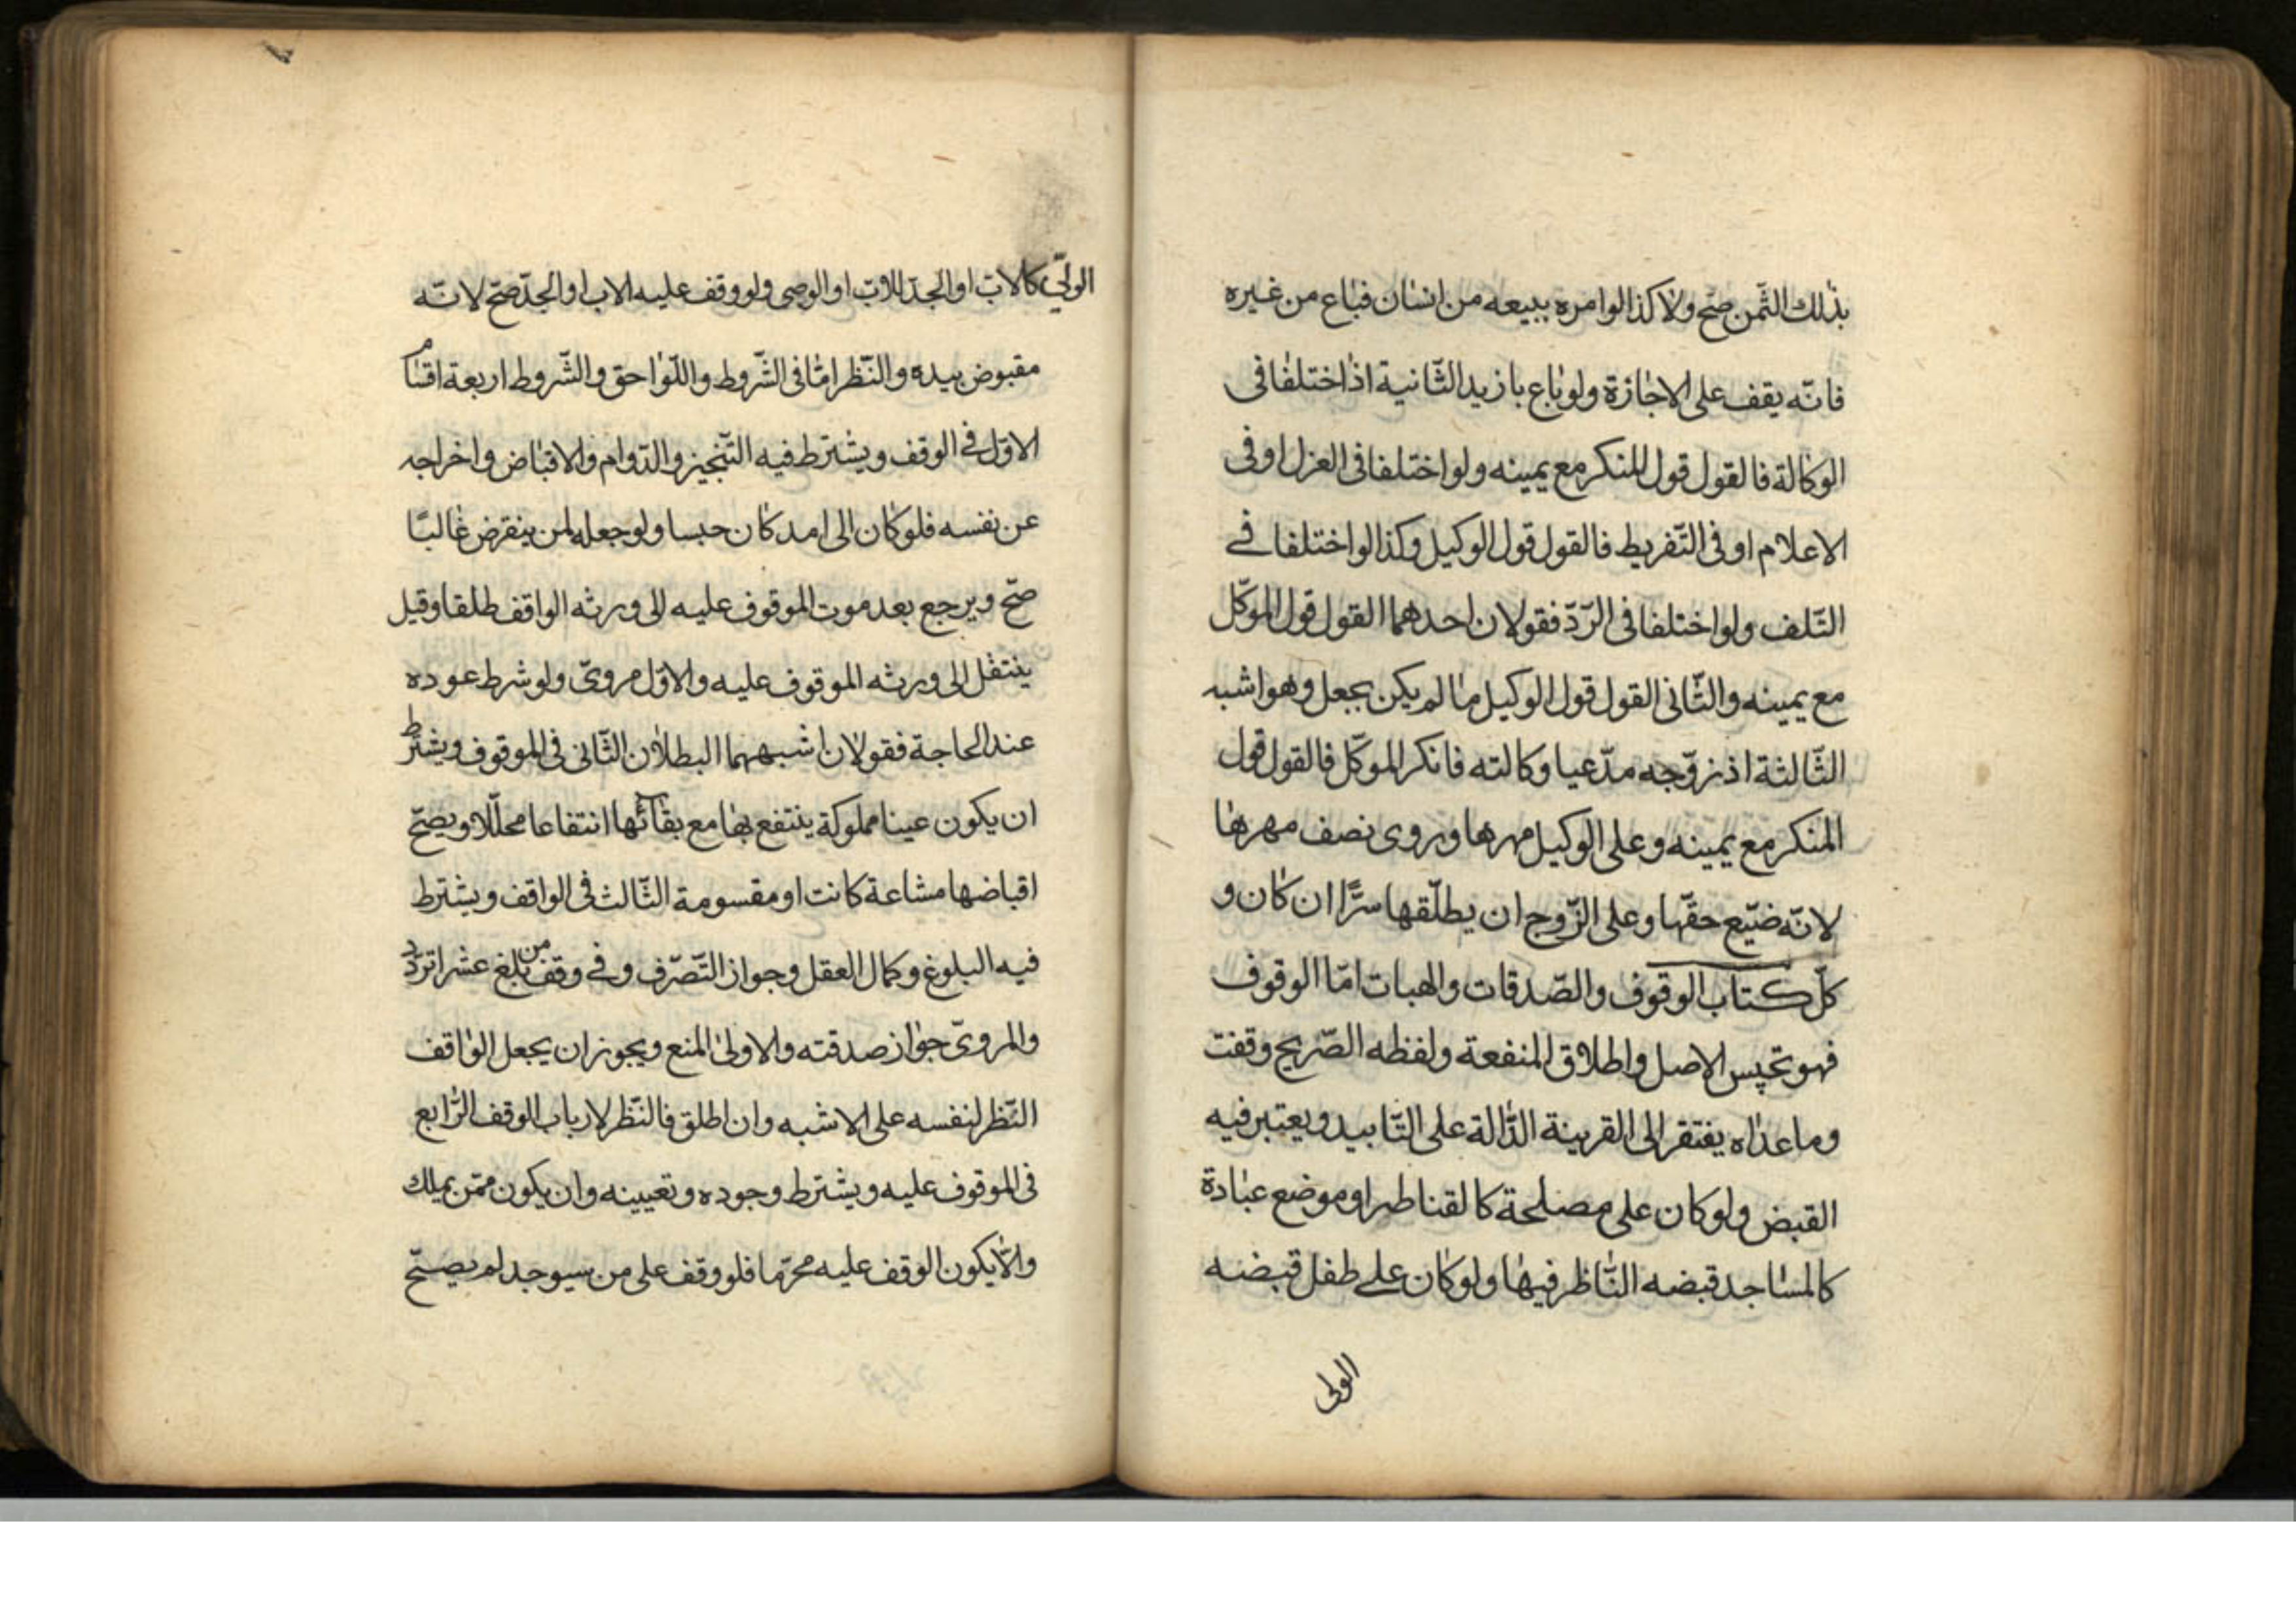 بذلك الثّمن صحّ ولا كذا لو امره ببيعه من انسان فباع من غيره
فانّه يقف على الاجازة ولو باع بازيد الثّانية اذا اختلفا فى
الوكالة فالقول قول المنكر مع يمينه ولو اختلفا فى العزل او فى
الاعلام او فى التّفريط فالقول قول الوكيل وكذا لو اختلفا فے
التّلف ولو اختلفا فى الرّدّ فقولان احدهما القول قول الموكّل
مع يمينه والثّانى القول قول الوكيل ما لم يكن بجعل وهو اشبه
الثّالثة اذ زوّجه مدّعيا وكالته فانكر الموكّل فالقول قول
المنكر مع يمينه وعلى الوكيل مهرها وروى نصف مهرها
لانّه ضيّع حقّها وعلى الزّوج ان يطلّقها سرًّا ان كان و
كلّ كتاب الوقوف والصّدقات والهبات امّا الوقوف
فهو تحبيس الاصل واطلاق المنفعة ولفظه الصّريح وقفت
وما عداه يفتقر الى القرينة الدّالة على التّابيد ويعتبر فيه
القبض ولو كان على مصلحة كالقناطر او موضع عبادة
كالمساجد قبضه النّاظر فيها ولو كان على طفل قبضه
الولى
الولىّ كالاب او الجدّ للاب او الوصى ولو وقف عليه الاب او الجدّ صحّ لانّه
مقبوض بيده والنّظر امّا فى الشّروط واللّواحق والشّروط اربعة اقسام
الاوّل فے الوقف ويشترط فيه التّنجيز والدّوام والاقباض واخراجه
عن نفسه فلو كان الى امد كان حبسا ولو جعله لمن ينقرض غالبًا
صحّ ويرجع بعد موت الموقوف عليه الى ورثه الواقف طلقا وقيل
ينتقل الى ورثه الموقوف عليه والاوّل مروىّ ولو شرط عوده
عند الحاجة فقولان اشبههما البطلان الثّانى فى الموقوف ويشترط
ان يكون عينا مملوكة ينتفع بها مع بقائها انتفاعا محلّلا ويصحّ
اقباضها مشاعة كانت او مقسومة الثّالث فى الواقف ويشترط
فيه البلوغ وكمال العقل وجواز التّصرّف وفے وقف من بلغ عشرا تردّد
والمروىّ جواز صدقته والاولى المنع ويجوز ان يجعل الواقف
النّظر لنفسه على الاشبه وان اطلق فالنّظر لارباب الوقف الرّابع
فى الموقوف عليه ويشترط وجوده وتعيينه وان يكون ممّن يملك
والّا يكون الوقف عليه محرّما فلو وقف على من سيوجد لم يصحّ